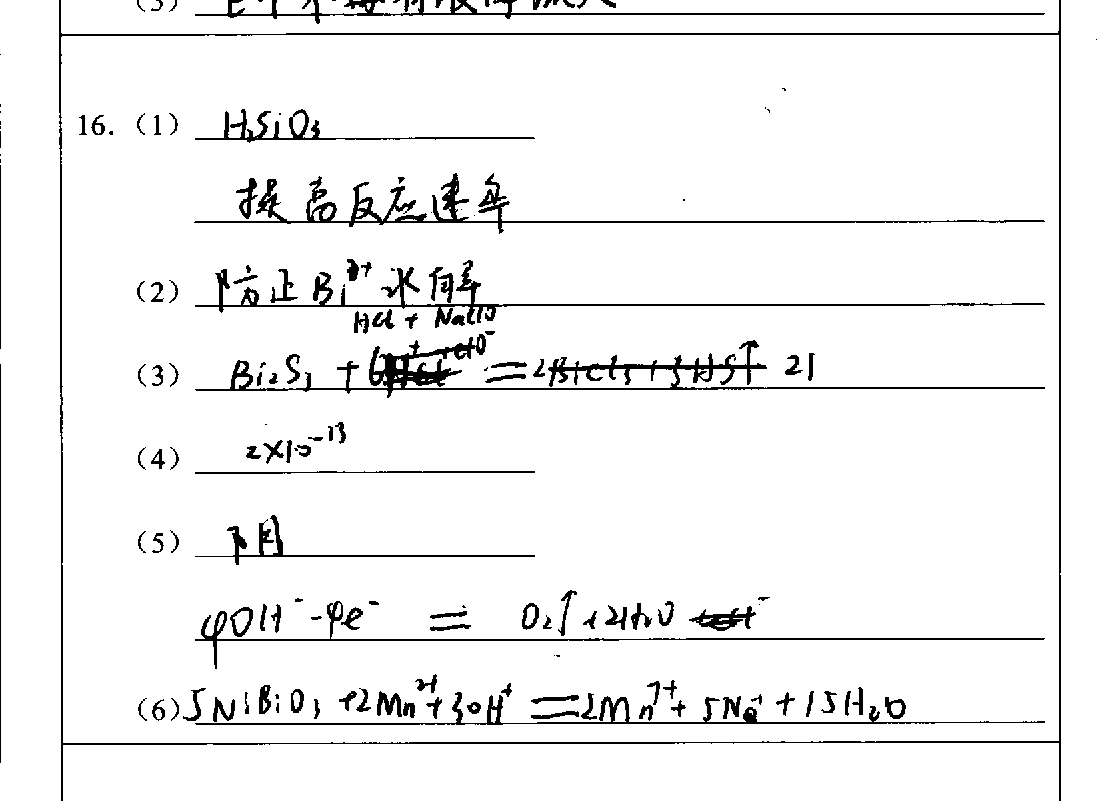 16.（1） H₂SiO₃
提高反应速率
（2） 防止Bi³⁺水解
HCl + NaClO
（3） Bi₂S₃ + = 2 21
（4） 2×10⁻¹³
（5） 阴
4OH⁻-4e⁻ = O₂↑+2H₂O
（6）5NiBiO₃+2Mn²⁺+30H⁺=2Mn⁷⁺+5Na⁺+15H₂O